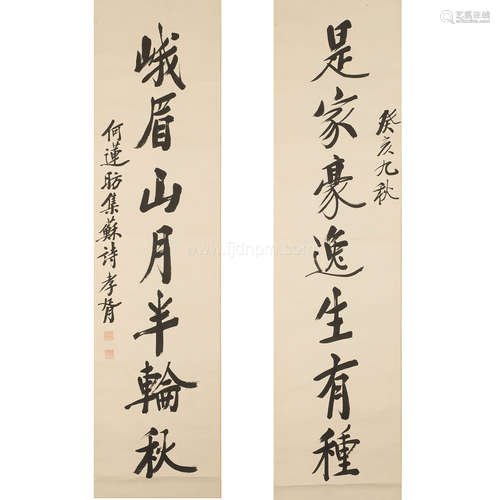 是家豪逸生有種
癸亥九秋
峨眉山月半輪秋
何蓮舫集蘇詩孝胥
www.fjdnpm.com